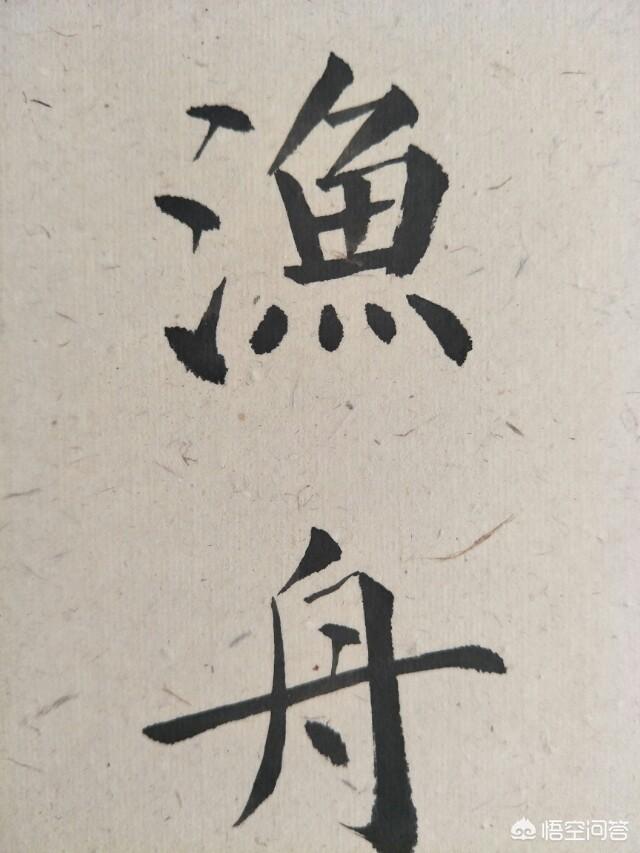 漁
舟
悟空问答